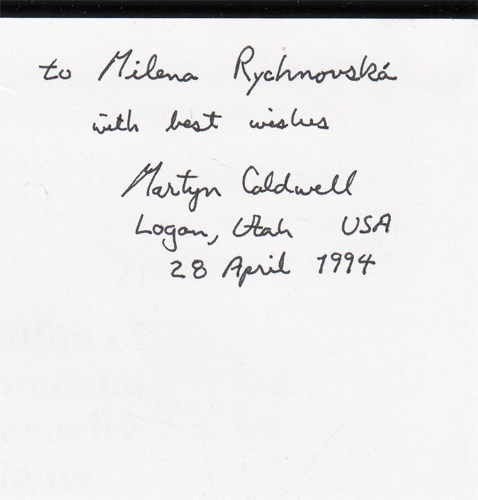 to Milena Rychnovská
with best wishes
Martyn Caldwell
Logan, Utah USA
28 April 1994